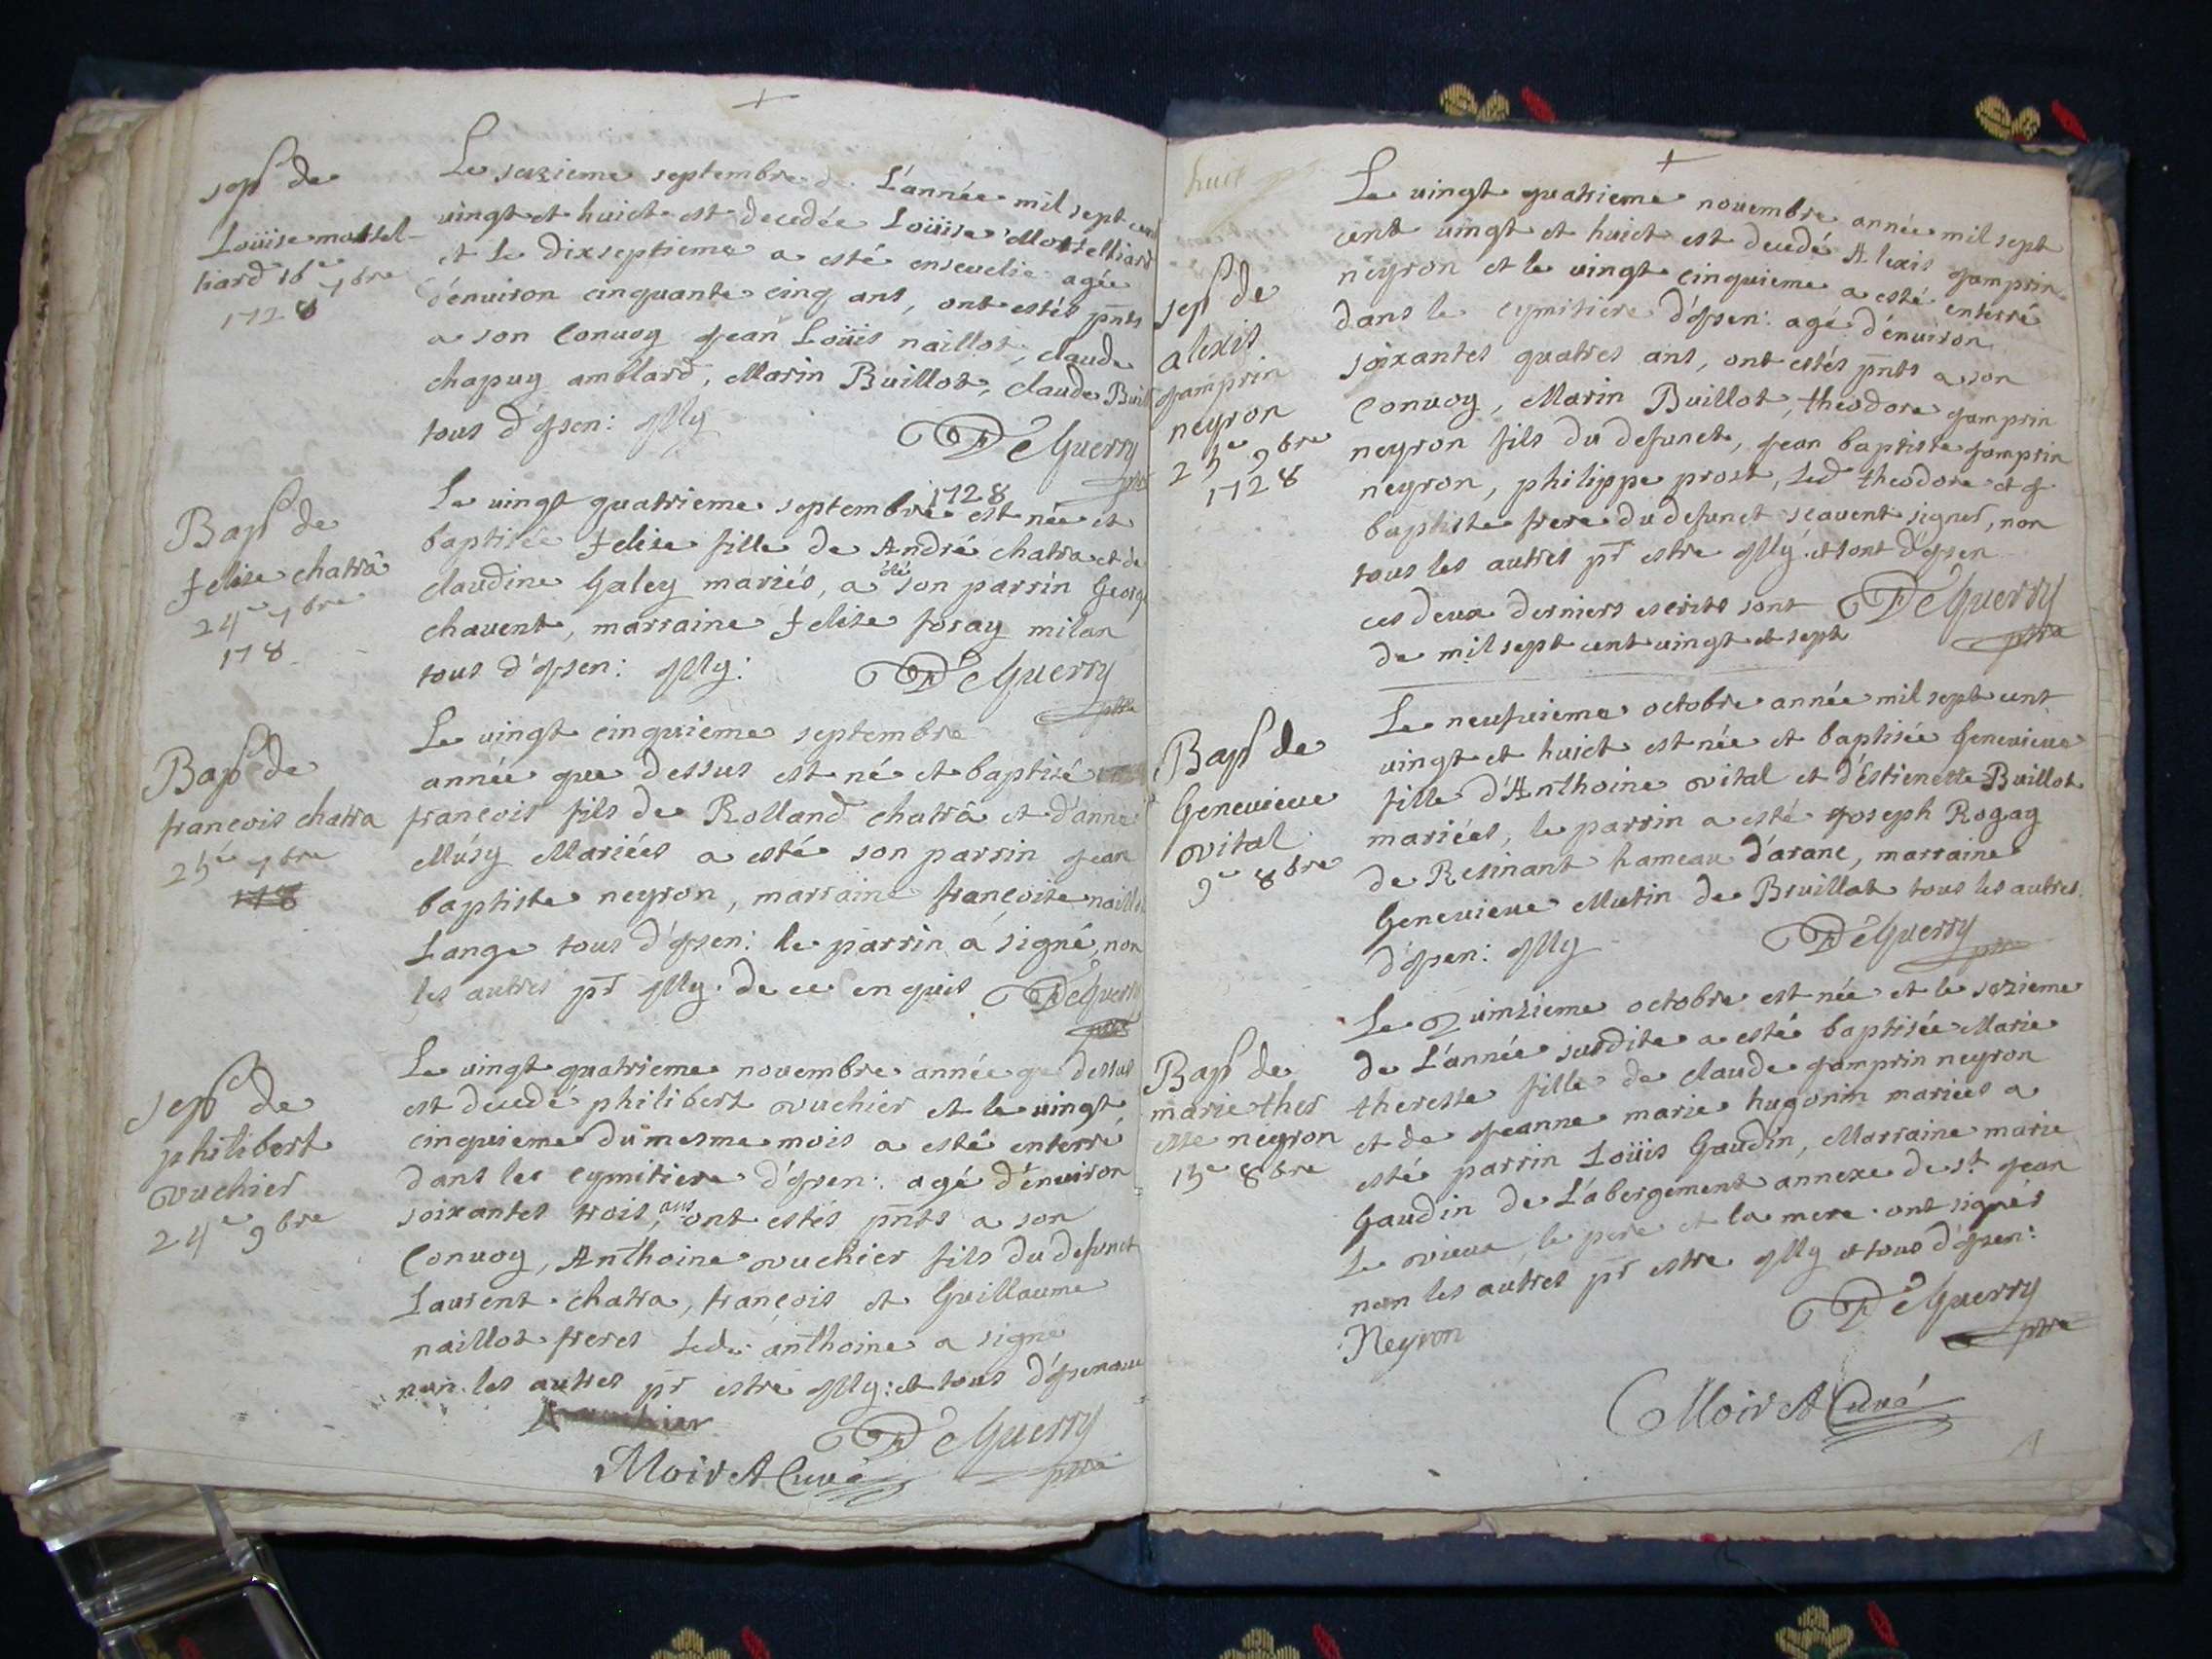 sepre de
Loüise mossel-
liard 16e 7bre
1728
Le sezieme septembre de L'année mil sept cent
uingt et huict est decedée Loüise Mosselliard
et Le dixseptieme a esté enseuelie agée
d'enuiron cinquante cinq ans, ont estés pnts
a son Conuoy jean Loüis naillot, claude
chapuy amblard, Marin Buillot, claude Buill
tous d'jzen: jlly
DeGuerry
ptre
Bapt de
felise chatra
24e 7bre
178
Le uingt quatrieme septembre 1728 est née et
baptisée felise fille de André chatra et de
claudine Galey mariés, a été son parrin George
chauent, marraine felise foray milan
tous d'jzen: jlly:
DeGuerry
ptre
Bapt de
francois chatra
25e 7bre
178
Le uingt cinquieme septembre
année que dessus est né et baptisé
francois fils de Rolland chatra et d'anne
Musy Mariées a esté son parrin jean
baptiste neyron, marraine francoise naillot
Lange tous d'jzen: le parrin a signé, non
les autres pr jlly. de ce enquis DeGuerry
ptre
sepre de
philibert
vuchier
24e 9bre
Le uingt quatrieme nouembre année q dessus
est decedé philibert vuchier et le uingt
cinquieme du mesme mois a esté enterré
dans les cymitiere d'jzen: agé d'enuiron
soixantes trois, ans ont estés pnts a son
Conuoy, Anthoine vuchier fils du defunct
Laurent chatra, francois et Guillaume
naillot freres Led. anthoine a signe
non les autres pr estre jlly: et tous d'jzenaue
A vuchier
DeGuerry
ptre
Moiret Curé
huit
sepre de
alexis
jamprin
neyron
25e 9bre
1728
Le uingt quatrieme nouembre année mil sept
cent uingt et huict est decedé Alexis jamprin
neyron et le uingt cinquieme a esté enterré
dans le cymitiere d'jzen: agé d'enuiron
soixantes quatres ans, ont estés pnts a son
Conuoy, Marin Buillot, theodore jamprin
neyron fils du defunct, jean baptiste jamprin
neyron, philippe prost, Led theodore et j
baptiste frere du defunct scauent signer, non
tous les autres pr estre jlly. et sont d'jzen
ces deux derniers escrits sont
de mil sept cent uingt et sept
DeGuerry
ptre
Bapt de
Geneuieue
vital
9e 8bre
Le neufuieme octobre année mil sept cent
uingt et huict est née et baptisée Geneuieue
fille d'Anthoine vital et d'Estienette Buillot
mariées, le parrin a esté joseph Rogay
de Resinant hameau d'aranc, marraine
Geneuieue Mutin de Bruillat tous les autres
d'jzen: jlly
DeGuerry
ptre
Bapt de
marie ther
esse neyron
15e 8bre
Le Quinzieme octobre est née et le sezieme
de L'année susdite a esté baptisée Marie
theresse fille de claude jamprin neyron
et de jeanne marie hugonin mariées a
esté parrin Loüis Gaudin, Marraine marie
Gaudin de L'abergement annexe de st. jean
Le vieux, le pere et la mere ont signés
non les autres pr estre jlly et tous d'jzen:
Neyron
DeGuerry
ptre
Moiret Curé